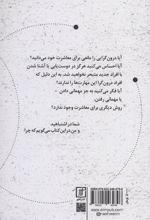 آیا درون‌گرایی را مانعی برای معاشرت خود می‌دانید؟
آیا احساس می‌کنید هرگز در دوست‌یابی یا آشنا شدن
با افراد جدید متبحر نخواهید شد، به این دلیل که
افراد درون‌گرا این مهارت‌ها را ندارند؟
آیا فکر می‌کنید به جز مهمانی دادن
یا مهمانی رفتن،
روش دیگری برای معاشرت وجود ندارد؟
شما در اشتباهید
و من در این کتاب می‌گویم که چرا